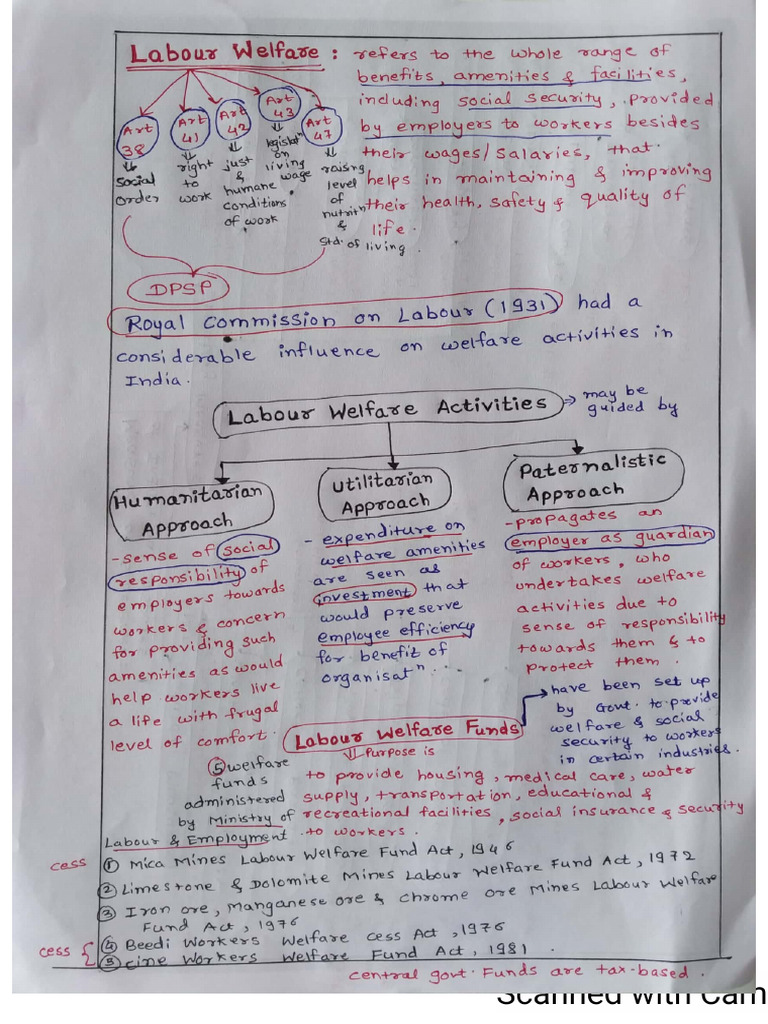 Labour Welfare : refers to the whole range of
benefits, amenities & facilities,
including social security, provided
by employers to workers besides
their wages/salaries, that
helps in maintaining & improving
their health, safety & quality of
life.
Art 38
social
order
Art 41
right
to
work
Art 42
just
&
humane
conditions
of work
Art 43
legislatn
on
living
wage
Art 47
raising
level
of
nutritn
&
std. of living.
DPSP
Royal Commission on Labour (1931) had a
considerable influence on welfare activities in
India.
Labour Welfare Activities ⇒ may be
guided by
Humanitarian
Approach
-sense of social
responsibility of
employers towards
workers & concern
for providing such
amenities as would
help workers live
a life with frugal
level of comfort.
Utilitarian
Approach
- expenditure on
welfare amenities
are seen as
investment that
would preserve
employee efficiency
for benefit of
organisatn...
Paternalistic
Approach
-propagates an
employer as guardian
of workers, who
undertakes welfare
activities due to
sense of responsibility
towards them & to
protect them.
Labour Welfare Funds
have been set up
by Govt. to provide
welfare & social
security to workers
in certain industries.
⇓ Purpose is
to provide housing, medical care, water
supply, transportation, educational &
recreational facilities, social insurance & security
to workers.
⑤ welfare
funds
administered
by Ministry of
Labour & Employment
cess ① Mica Mines Labour Welfare Fund Act, 1946
② Limestone & Dolomite Mines Labour Welfare Fund Act, 1972
③ Iron ore, Manganese ore & chrome ore Mines Labour Welfare
Fund Act, 1976
cess { ④ Beedi Workers Welfare Cess Act, 1976
⑤ Cine Workers Welfare Fund Act, 1981.
central govt. Funds are tax-based.
Scanned with Cam